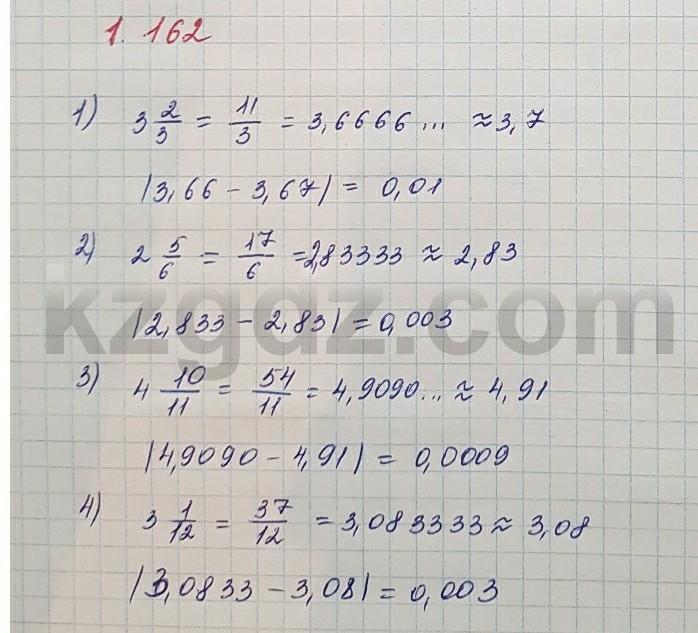 1. 162
1) 3 2/3 = 11/3 = 3,6666... ≈ 3,7
|3,66 - 3,67| = 0,01
2) 2 5/6 = 17/6 = 2,83333 ≈ 2,83
|2,833 - 2,83| = 0,003
3) 4 10/11 = 54/11 = 4,9090... ≈ 4,91
|4,9090 - 4,91| = 0,0009
4) 3 1/12 = 37/12 = 3,083333 ≈ 3,08
|3,0833 - 3,08| = 0,003
kzgdz.com